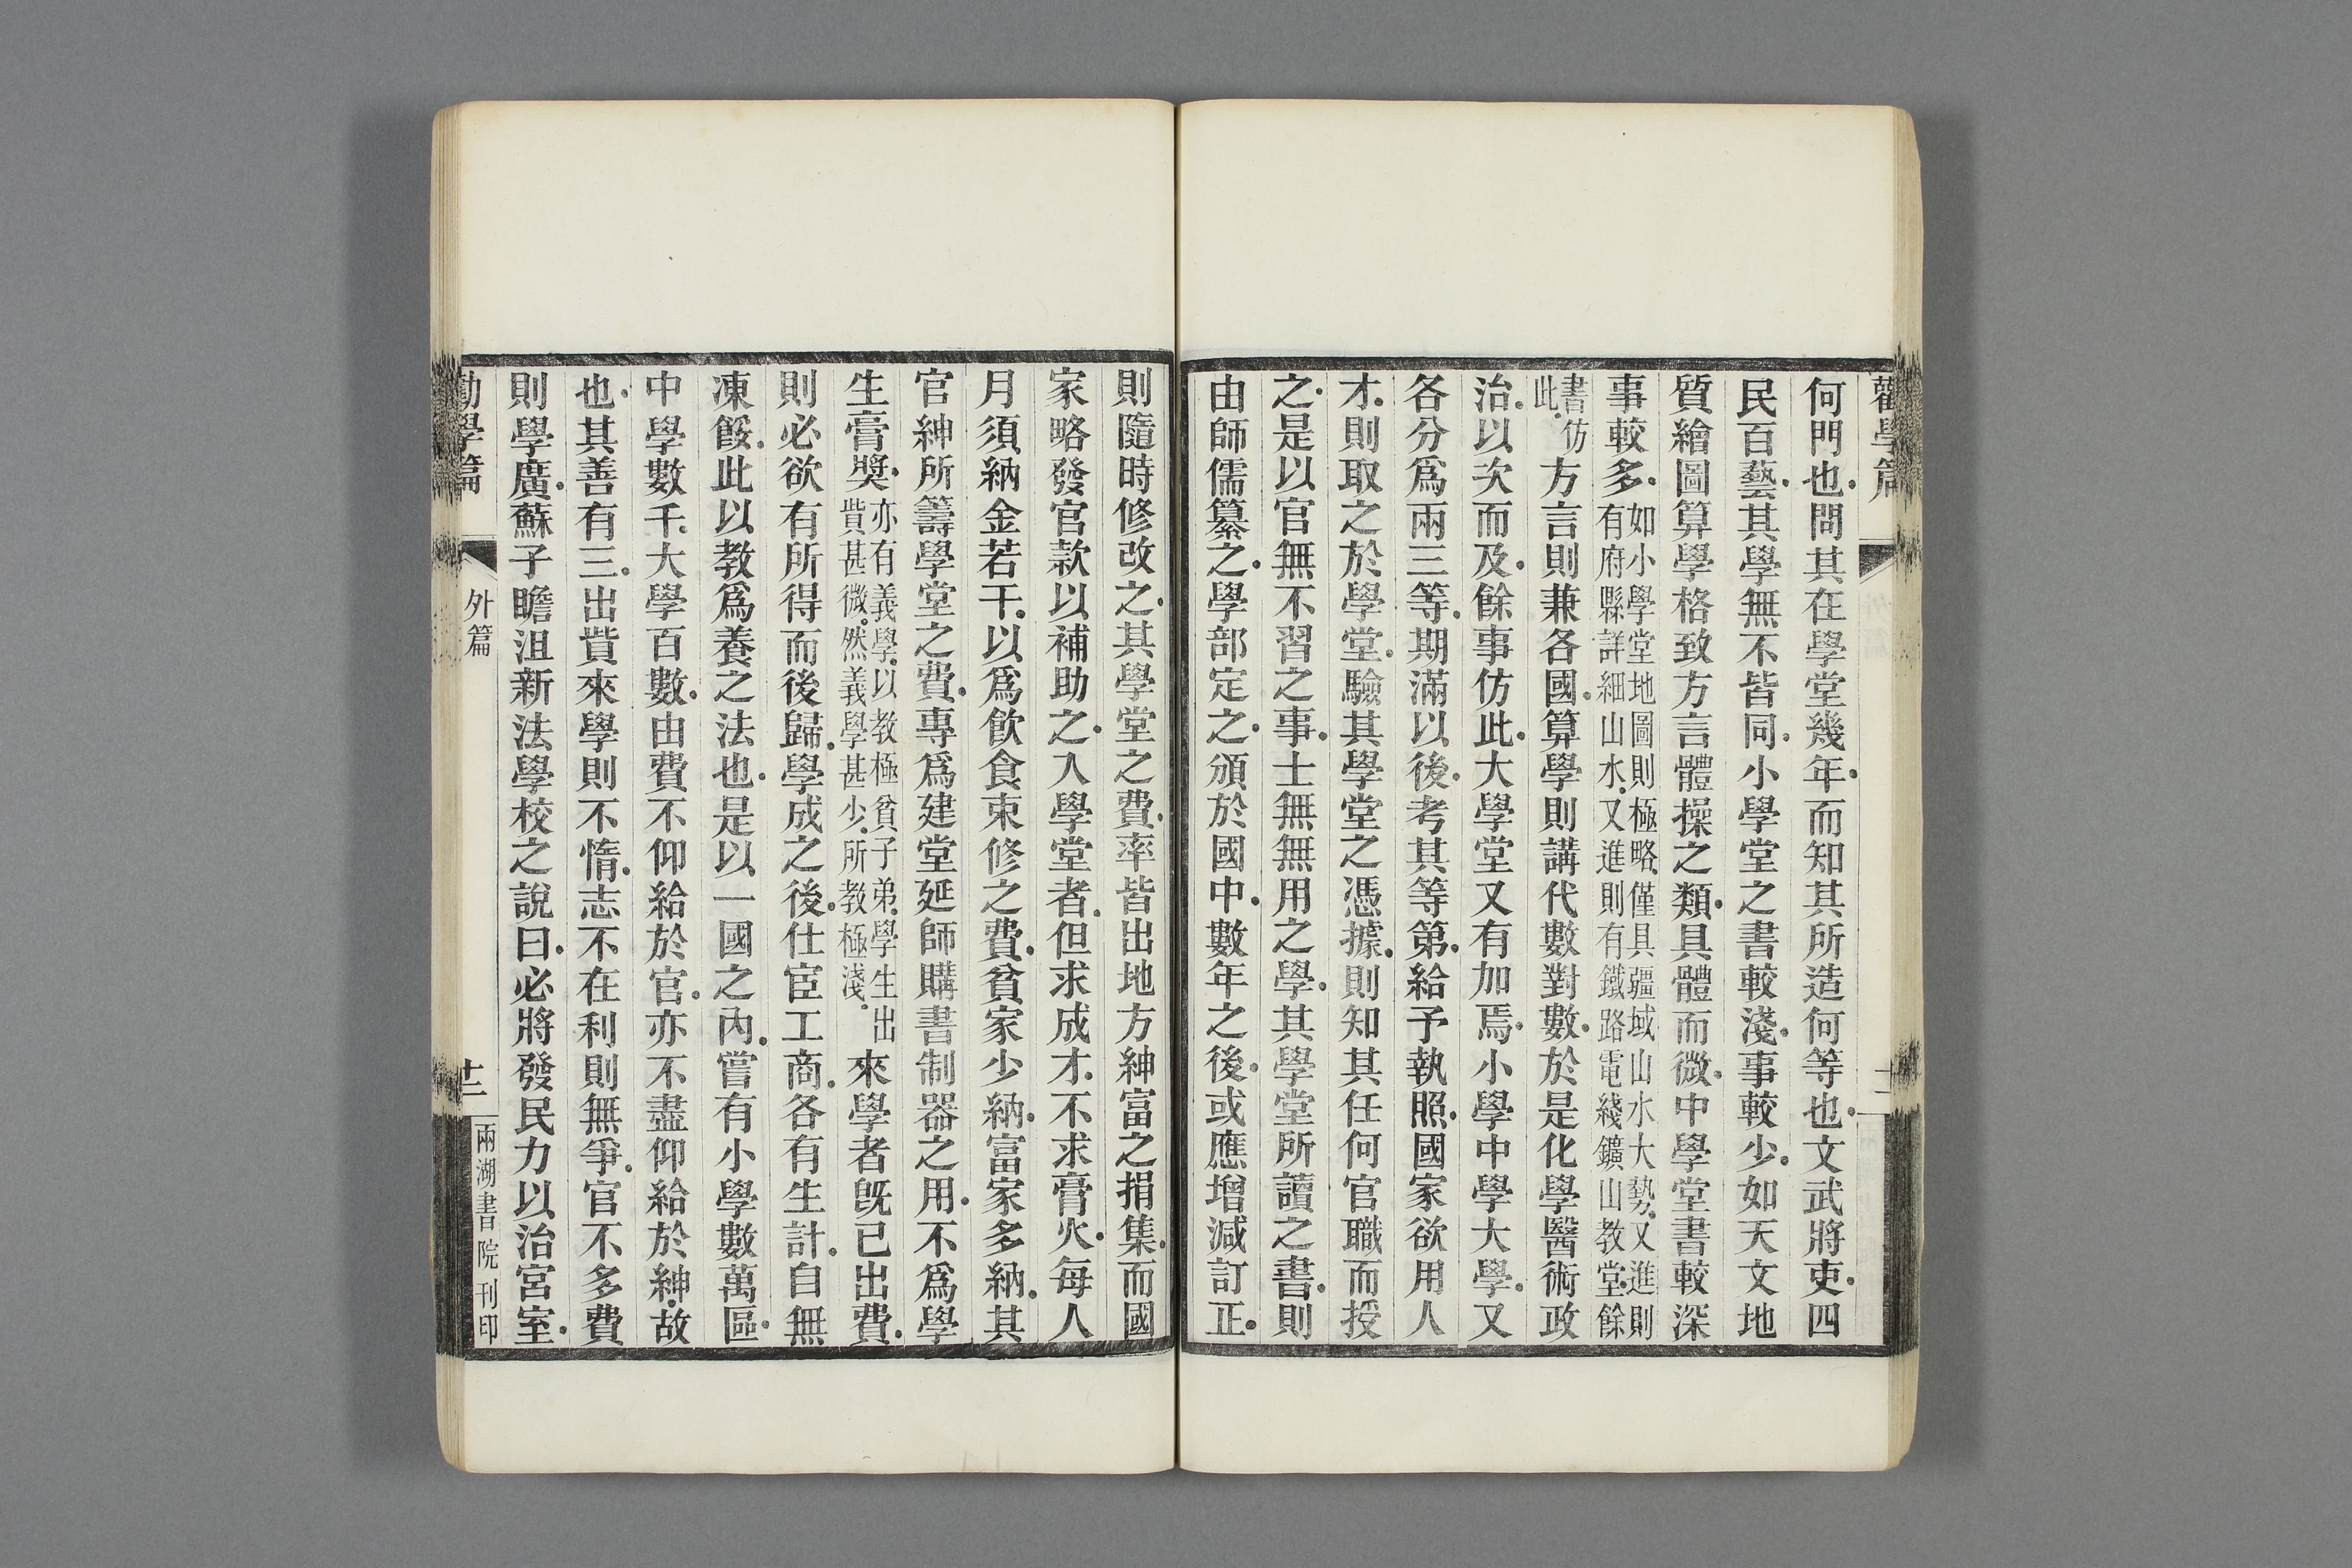 勸學篇
十二
何門也問其在學堂幾年而知其所造何等也文武將吏四
民百藝其學無不皆同小學堂之書較淺事較少如天文地
質繪圖算學格致方言體操之類具體而微中學堂書較深
事較多如小學堂地圖則極略僅具疆域山水大勢又進則
有府縣詳細山水又進則有鐵路電綫鑛山教堂餘
書仿
此方言則兼各國算學則講代數對數於是化學醫術政
治以次而及餘事仿此大學堂又有加焉小學中學大學又
各分爲兩三等期滿以後考其等第給予執照國家欲用人
才則取之於學堂驗其學堂之憑據則知其任何官職而授
之是以官無不習之事士無無用之學其學堂所讀之書則
由師儒纂之學部定之頒於國中數年之後或應增減訂正
則隨時修改之其學堂之費率皆出地方紳富之捐集而國
家略發官款以補助之入學堂者但求成才不求膏火每人
月須納金若干以爲飲食束修之費貧家少納富家多納其
官紳所籌學堂之費專爲建堂延師購書制器之用不爲學
生膏獎亦有義學以教極貧子弟學生出
貲甚微然義學甚少所教極淺來學者旣已出費
則必欲有所得而後歸學成之後仕宦工商各有生計自無
凍餒此以教爲養之法也是以一國之內嘗有小學數萬區
中學數千大學百數由費不仰給於官亦不盡仰給於紳故
也其善有三出貲來學則不惰志不在利則無爭官不多費
則學廣蘇子瞻沮新法學校之說曰必將發民力以治宮室
勸學篇
外篇
十二
兩湖書院刊印